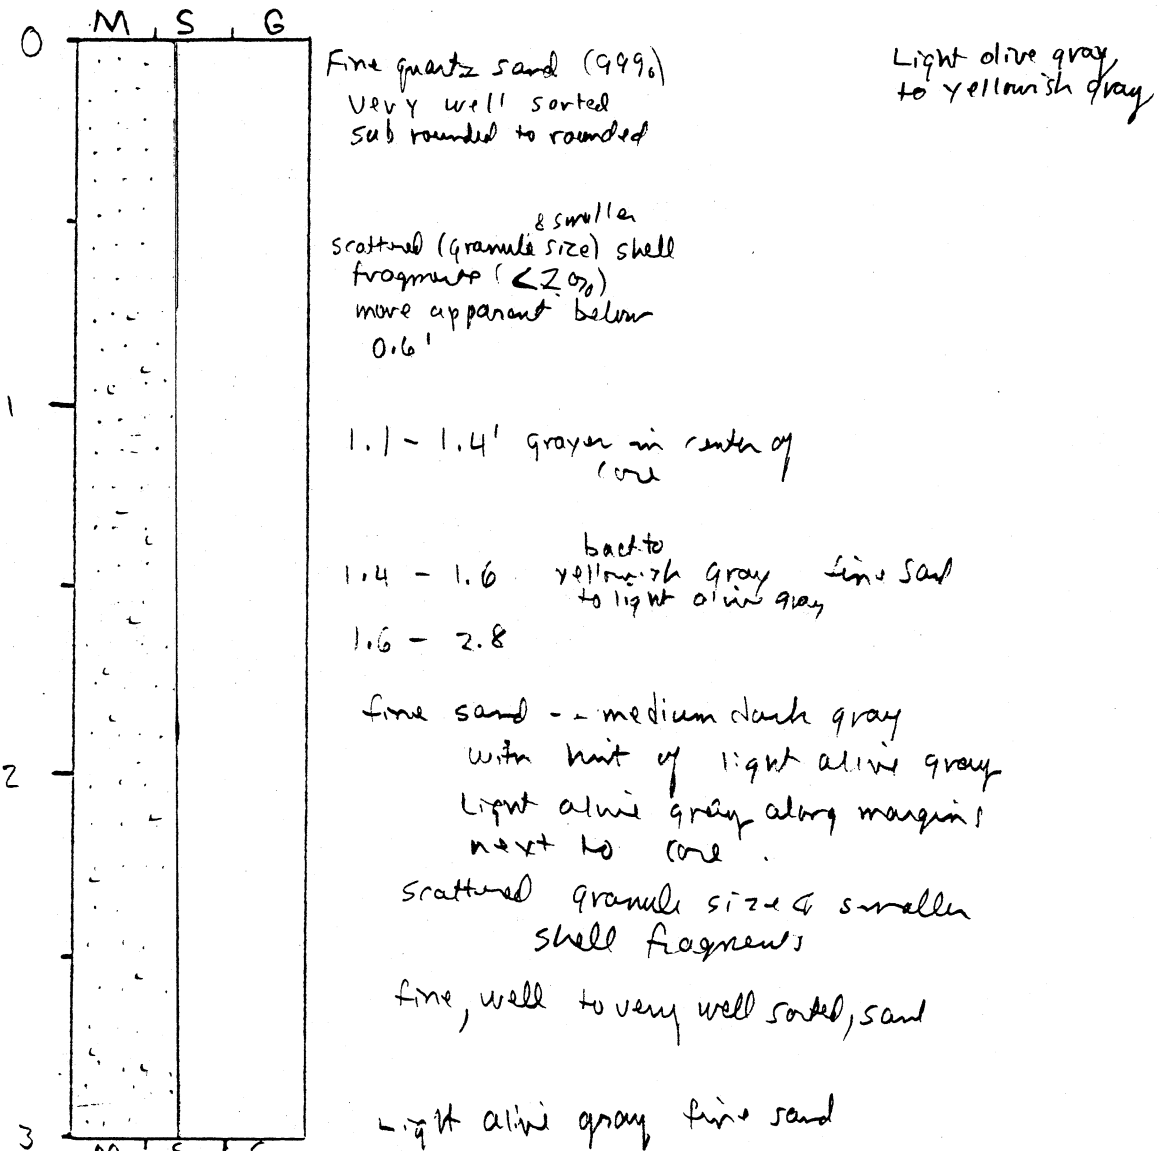 M S G
0
Fine quartz sand (99%)
very well sorted
sub rounded to rounded
Light olive gray
to yellowish gray
& smaller
scattered (granule size) shell
fragments (<2%)
more apparent below
0.6'
1
1.1 - 1.4' grayer in center of
core
back to
1.4 - 1.6 yellowish gray fine sand
to light olive gray
1.6 - 2.8
fine sand -- medium dark gray
with hint of light olive gray
2
Light olive gray along margins
next to core.
scattered granule size & smaller
shell fragments
fine, well to very well sorted, sand
Light olive gray fine sand
3
M S G